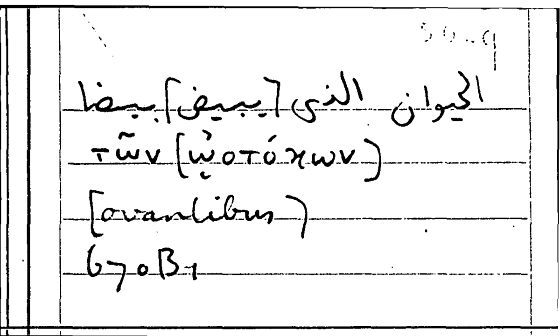 الحيوان الذى [يبيض] بيضا
τῶν [ᾠοτόκων]
[ovantibus]
670B1